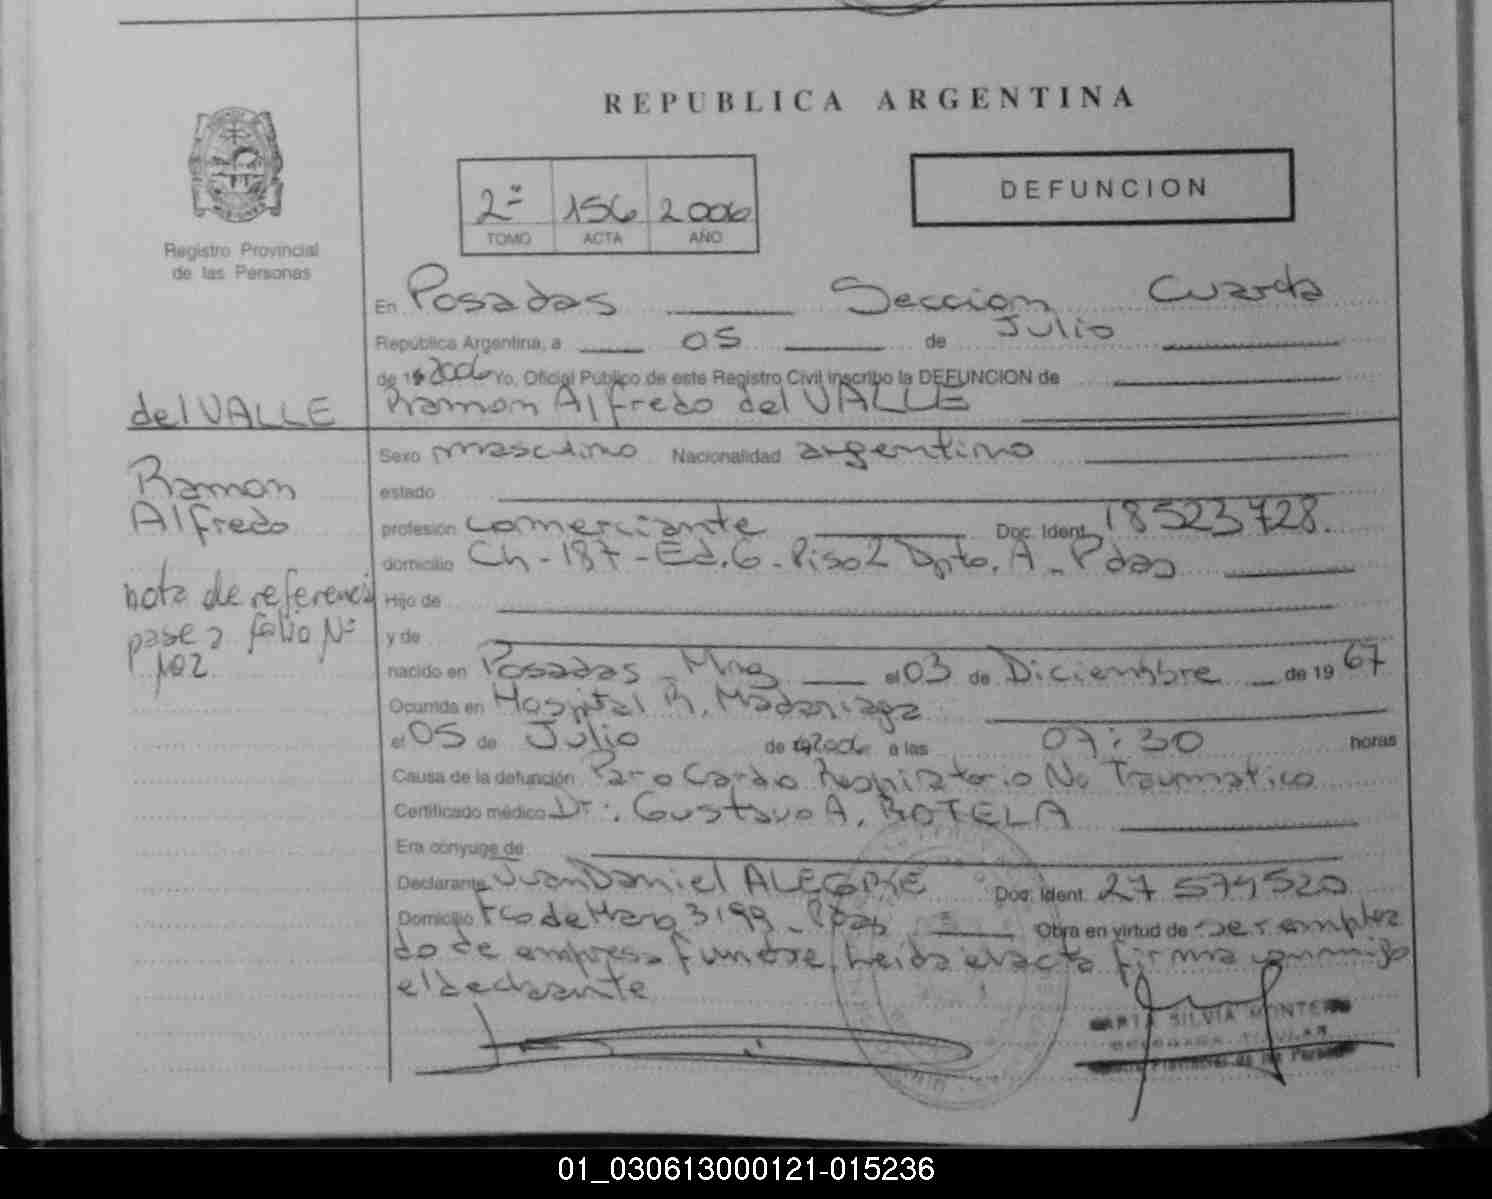 REPUBLICA ARGENTINA
DEFUNCION
2ª 156 2006
TOMO ACTA AÑO
Registro Provincial
de las Personas
En Posadas Seccion Cuarta
República Argentina, a 05 de Julio
de 19 2006 Yo, Oficial Público de este Registro Civil inscribo la DEFUNCION de
del VALLE
Ramon Alfredo del VALLE
Sexo masculino Nacionalidad argentino
Ramon
Alfredo
estado
profesión comerciante Doc. Ident. 18523728.
domicilio Ch-187-Ed.6-Piso2 Dpto. A-Pdas
nota de referencia
pase a folio Nº
102
Hijo de
y de
nacido en Posadas - Mnes el 03 de Diciembre de 1967
Ocurrida en Hospital R. Madariaga
el 05 de Julio de 2006 a las 07:30 horas
Causa de la defunción Paro Cardo Respiratorio No Traumatico
Certificado médico Dr: Gustavo A. BOTELA
Era cónyuge de
Declarante Juan Daniel ALEGRE Doc. Ident. 27 574520
Domicilio Fco de Haro 3199 - Pdas Obra en virtud de ser emplea
do de empresa funebre, leida el acta firma conmigo
el declarante
MARIA SILVIA MONTERO
TITULAR
Provincial de las Personas
01_030613000121-015236